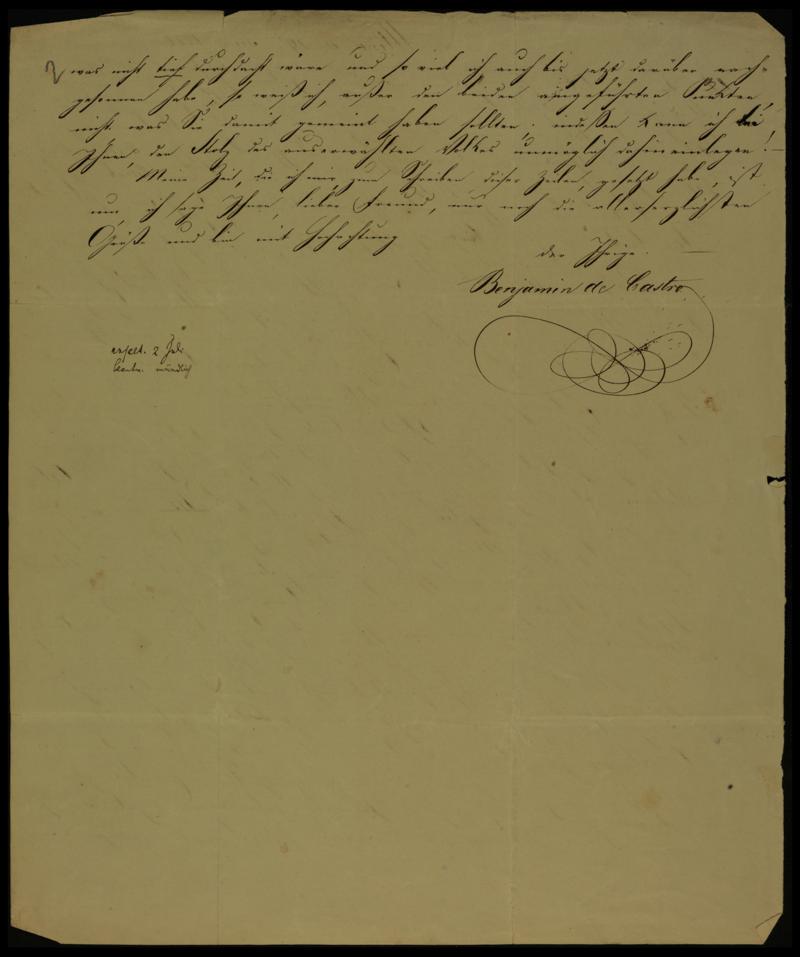 2
was nicht tief durchdacht wäre und so viel ich auch bis jetzt darüber nach-
gesonnen habe, so weiß ich, außer den beiden angeführten Punkten,
nicht was Sie damit gemeint haben sollten; indeßen kann ich bei
Ihnen, den Stolz des auserwählten Volkes unmöglich dahineinlegen! —
Meine Zeit, die ich mir zum Schreiben dieser Zeilen, gesetzt habe, ist
um, ich sage Ihnen, lieber Freund, nur noch die allerherzlichsten
Grüße und bin mit Hochachtung
der Ihrige. —
Benjamin de Castro
2 Juli
mündlich